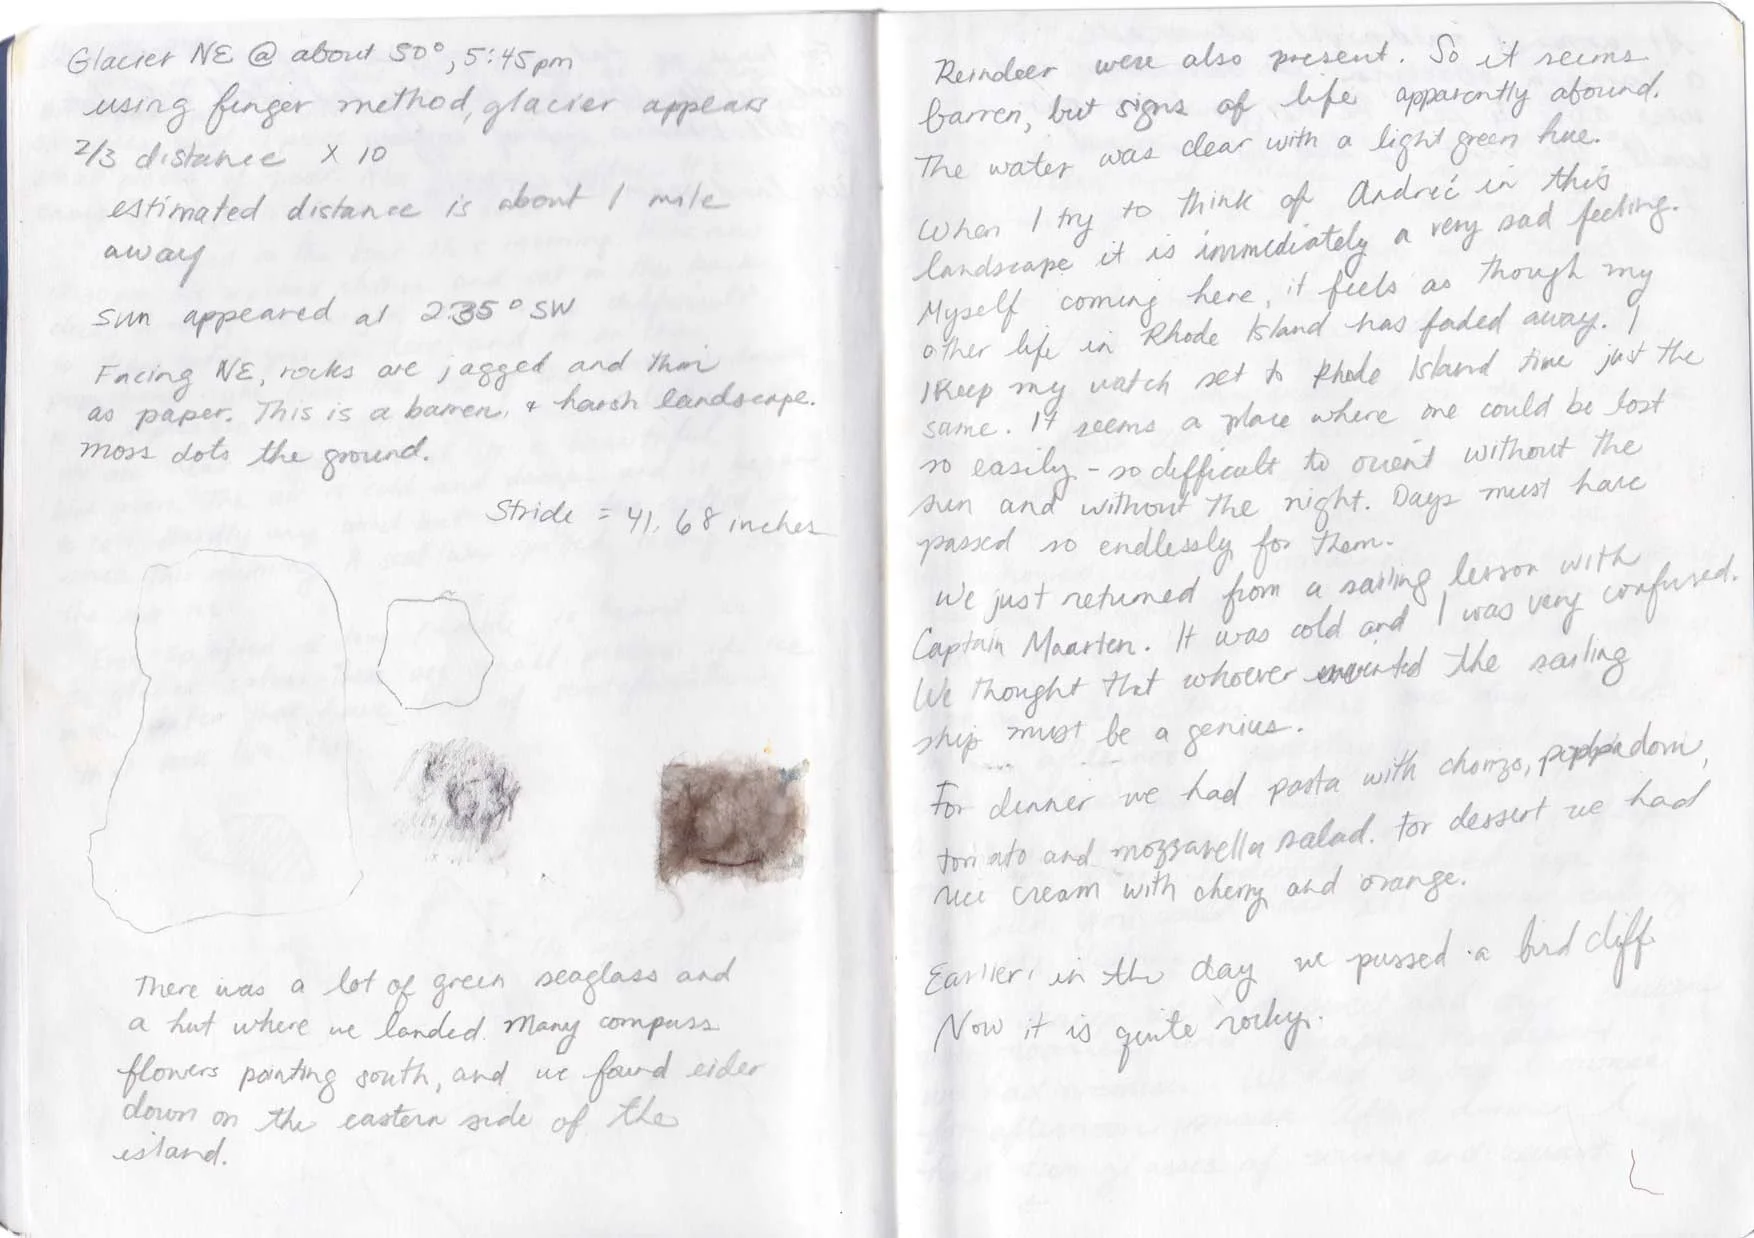 Glacier NE @ about 50°, 5:45pm
using finger method, glacier appears
2/3 distance x 10
estimated distance is about 1 mile
away
Sun appeared at 235° SW
Facing NE, rocks are jagged and thin
as paper. This is a barren, + harsh landscape.
moss dots the ground.
Stride = 41.68 inches
There was a lot of green seaglass and
a hut where we landed. Many compass
flowers pointing south, and we found eider
down on the eastern side of the
island.
Reindeer were also present. So it seems
barren, but signs of life apparently abound.
The water was clear with a light green hue.
When I try to think of Andreé in this
landscape it is immediately a very sad feeling.
Myself coming here, it feels as though my
other life in Rhode Island has faded away. I
Keep my watch set to Rhode Island time just the
same. It seems a place where one could be lost
so easily - so difficult to orient without the
sun and without the night. Days must have
passed so endlessly for them.
We just returned from a sailing lesson with
Captain Maarten. It was cold and I was very confused.
We thought that whoever invented the sailing
ship must be a genius.
For dinner we had pasta with chorizo,
tomato and mozzarella salad. For dessert we had
ice cream with cherry and orange.
Earlier in the day we passed a bird cliff.
Now it is quite rocky.